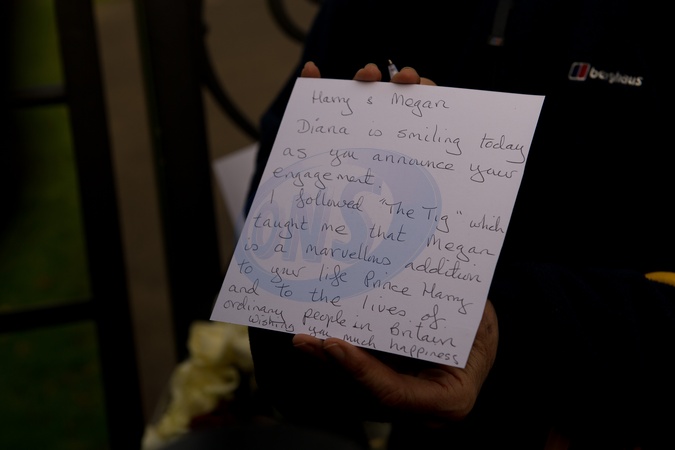 Harry & Megan
Diana is smiling today
as you announce your
engagement.
I followed "The Tig" which
taught me that Megan
is a marvellous addition
to your life Prince Harry
and to the lives of
ordinary people in Britain
wishing you much happiness
berghaus